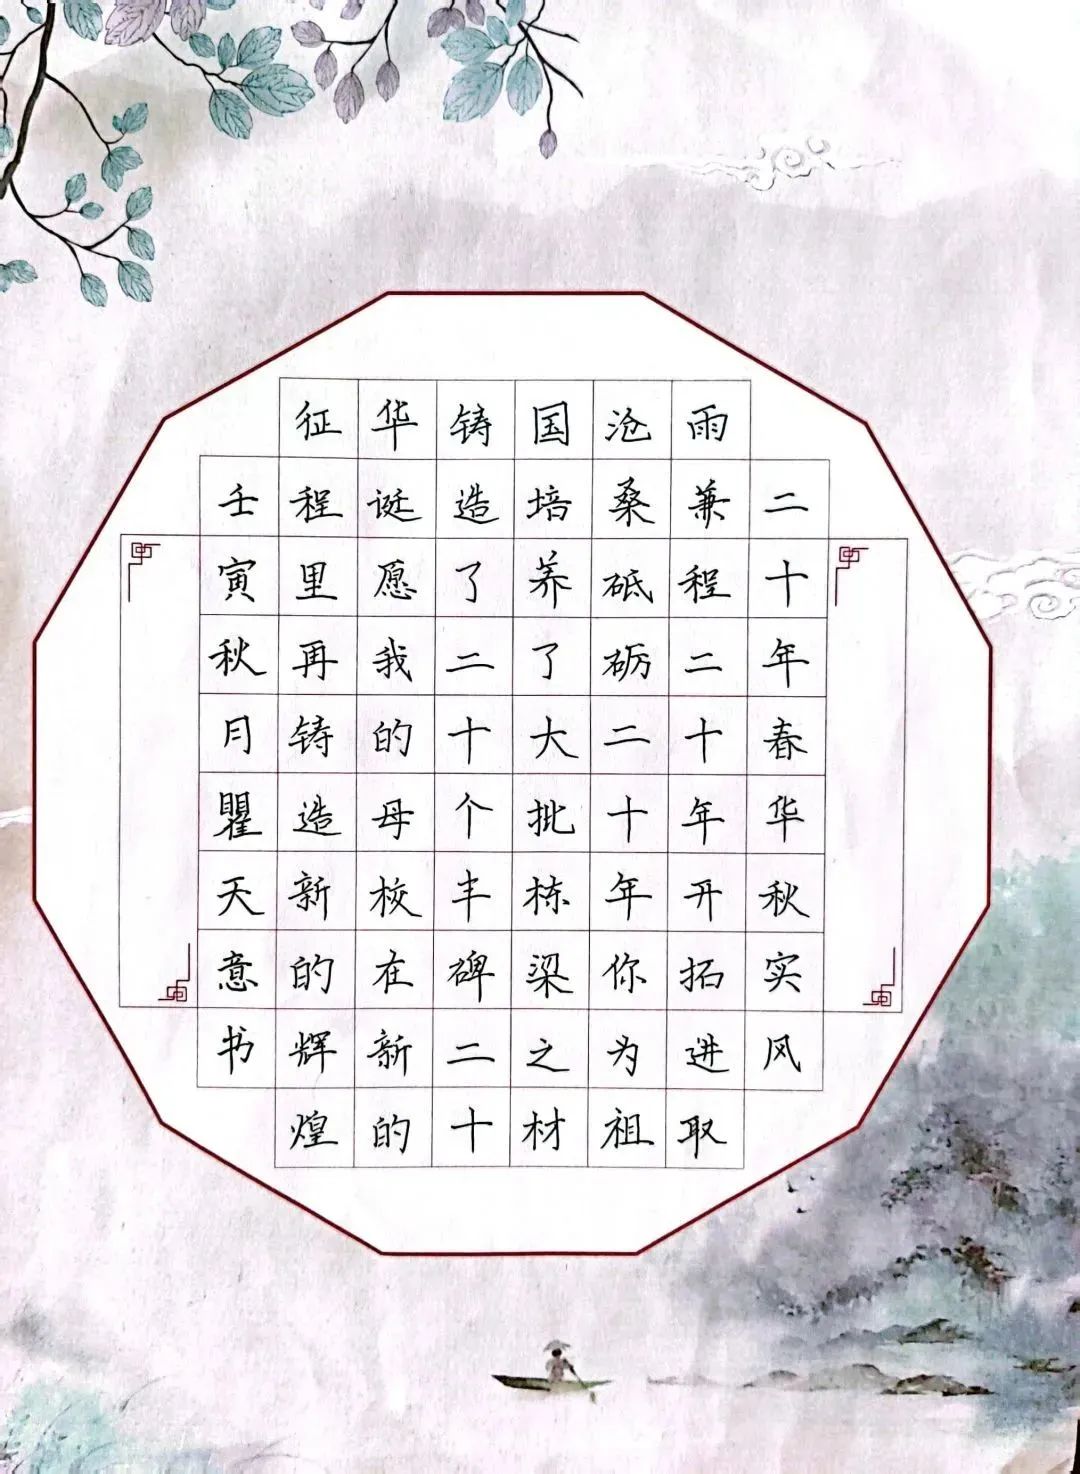 二十年春华秋实风
雨兼程二十年开拓进取
沧桑砥砺二十年你为祖
国培养了大批栋梁之材
铸造了二十个丰碑二十
华诞愿我的母校在新的
征程里再铸造新的辉煌
壬寅秋月瞿天意书